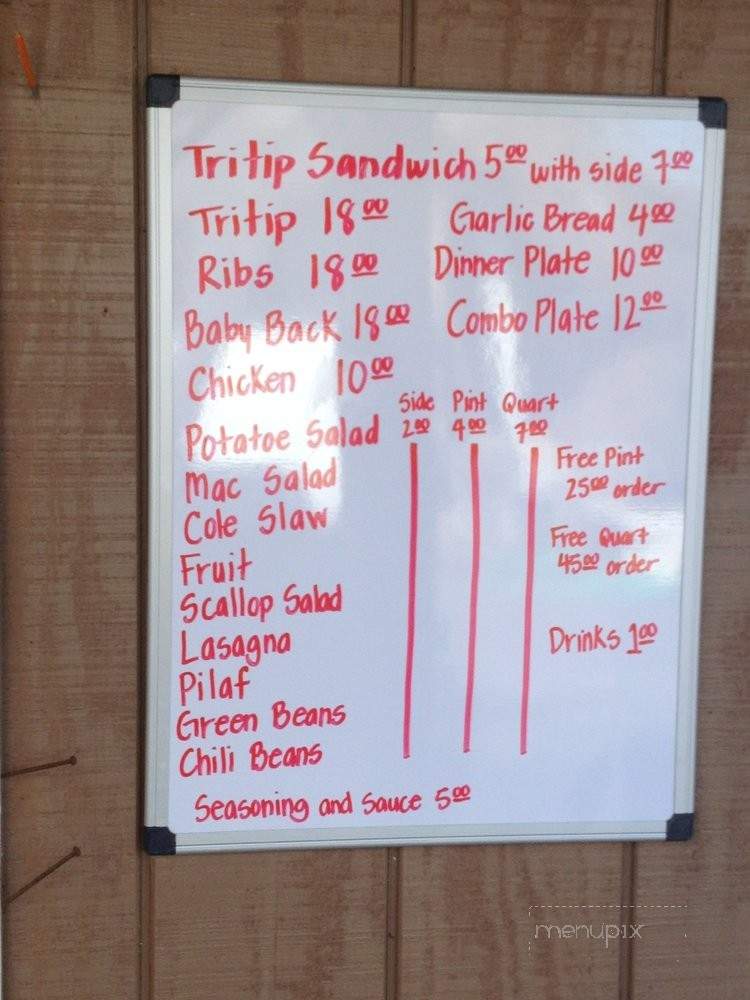 Tritip Sandwich 5.00 with side 7.00
Tritip 18.00 Garlic Bread 4.00
Ribs 18.00 Dinner Plate 10.00
Baby Back 18.00 Combo Plate 12.00
Chicken 10.00
Side Pint Quart
Potatoe Salad 2.00 4.00 7.00
Mac Salad
Free Pint
25.00 order
Cole Slaw
Fruit
Free Quart
45.00 order
Scallop Salad
Lasagna
Drinks 1.00
Pilaf
Green Beans
Chili Beans
Seasoning and Sauce 5.00
menupix